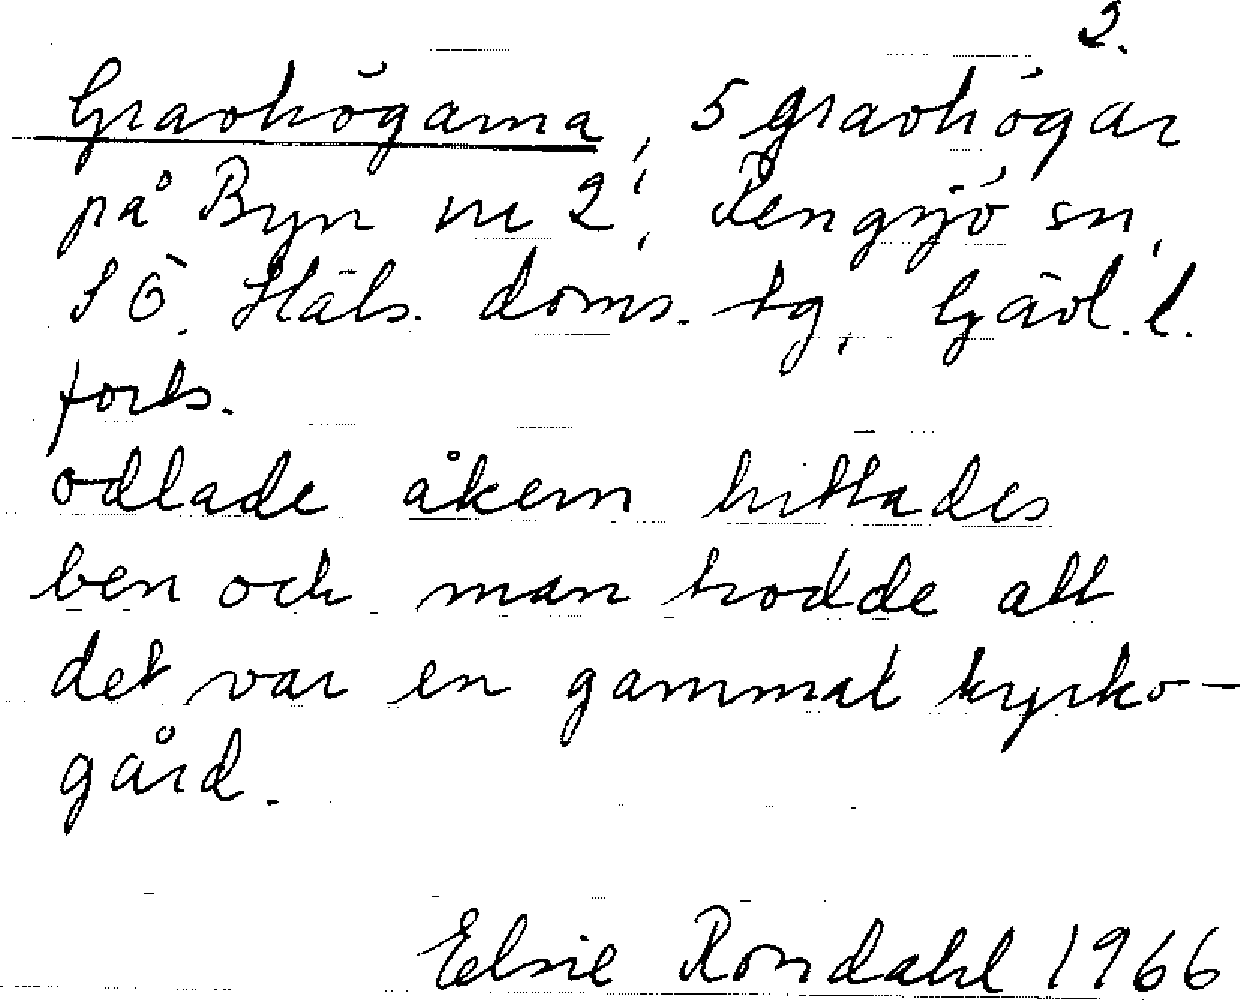 2.
Gravhögarna, 5 gravhögar
på Byn nr 2, Rengsjö sn,
SÖ. Häls. doms. tg, Gävl. l.
forts.
odlade åkern hittades
ben och man trodde att
det var en gammal kyrko-
gård.
Elsie Rondahl 1966